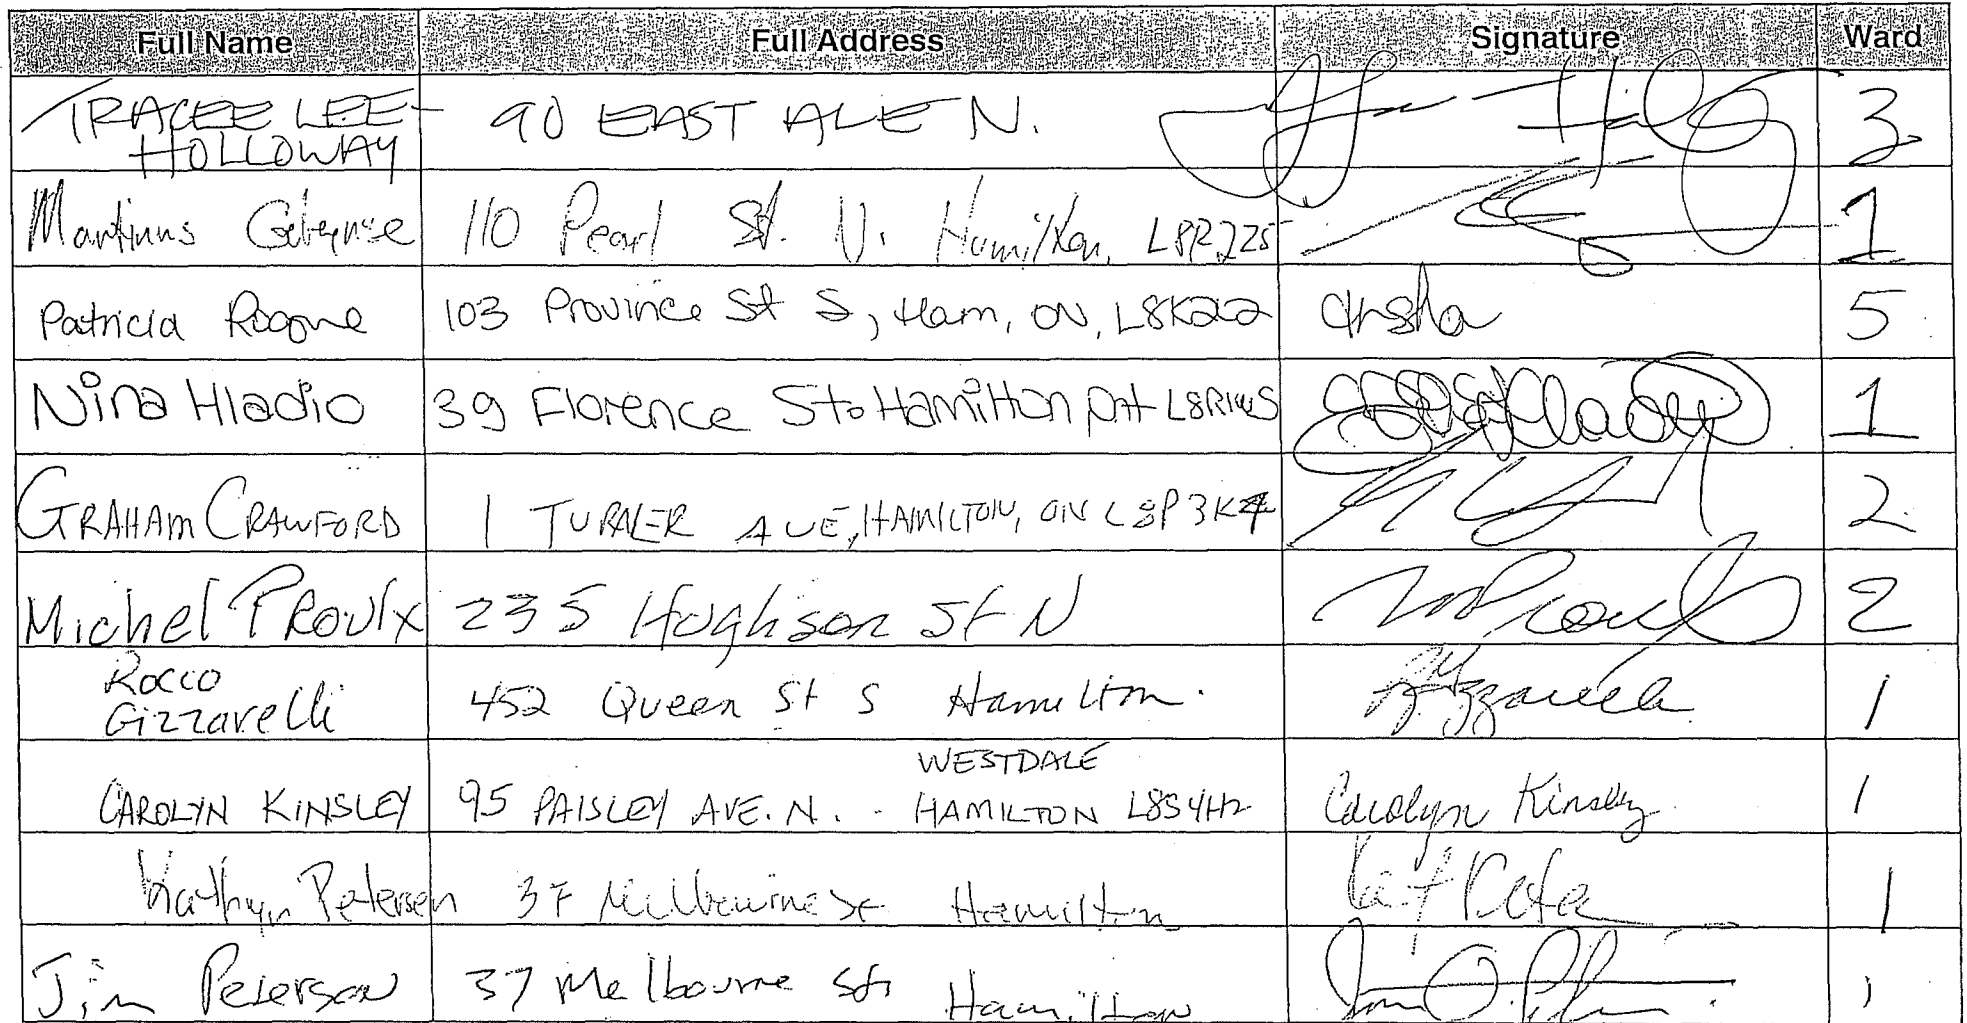 Full Name Full Address Signature Ward
TRACEE LEE-
HOLLOWAY 90 EAST AVE N. 3
Martinus 110 Pearl St. N. Hamilton, L8R 2Z5 1
Patricia 103 Province St S, Ham, ON, L8K2L2 5
Nina Hladio 39 Florence St. Hamilton Ont L8R1W5 1
GRAHAM CRAWFORD 1 TURNER AVE, HAMILTON, ON L8P 3K4 2
Michel PROULX 235 Hughson St N MProulx 2
Rocco
Gizzarelli 452 Queen St S Hamilton. 1
WESTDALE
CAROLYN KINSLEY 95 PAISLEY AVE. N. - HAMILTON L8S4H2 Carolyn Kinsley 1
Kathryn Petersen 37 Melbourne St Hamilton 1
Jim Peterson 37 Melbourne St. Hamilton 1